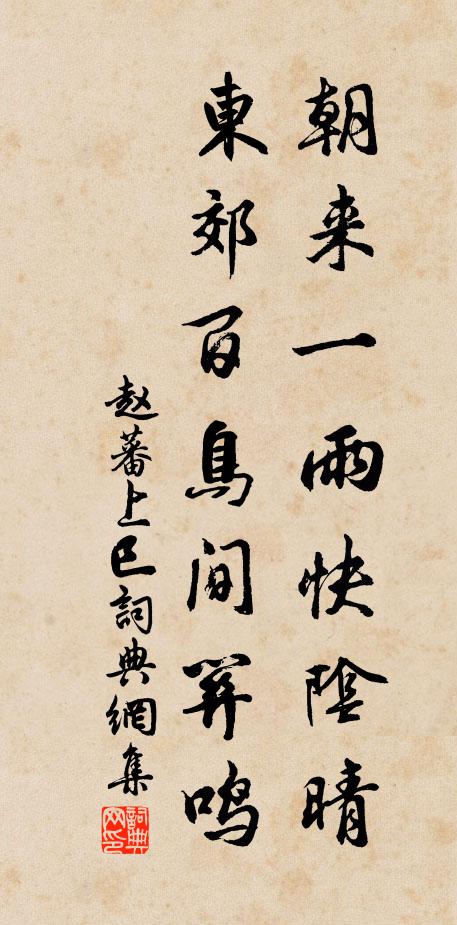 朝来一雨快陰晴
東郊百鳥間關鳴
赵蕃上巳詞典網集
詞典网印